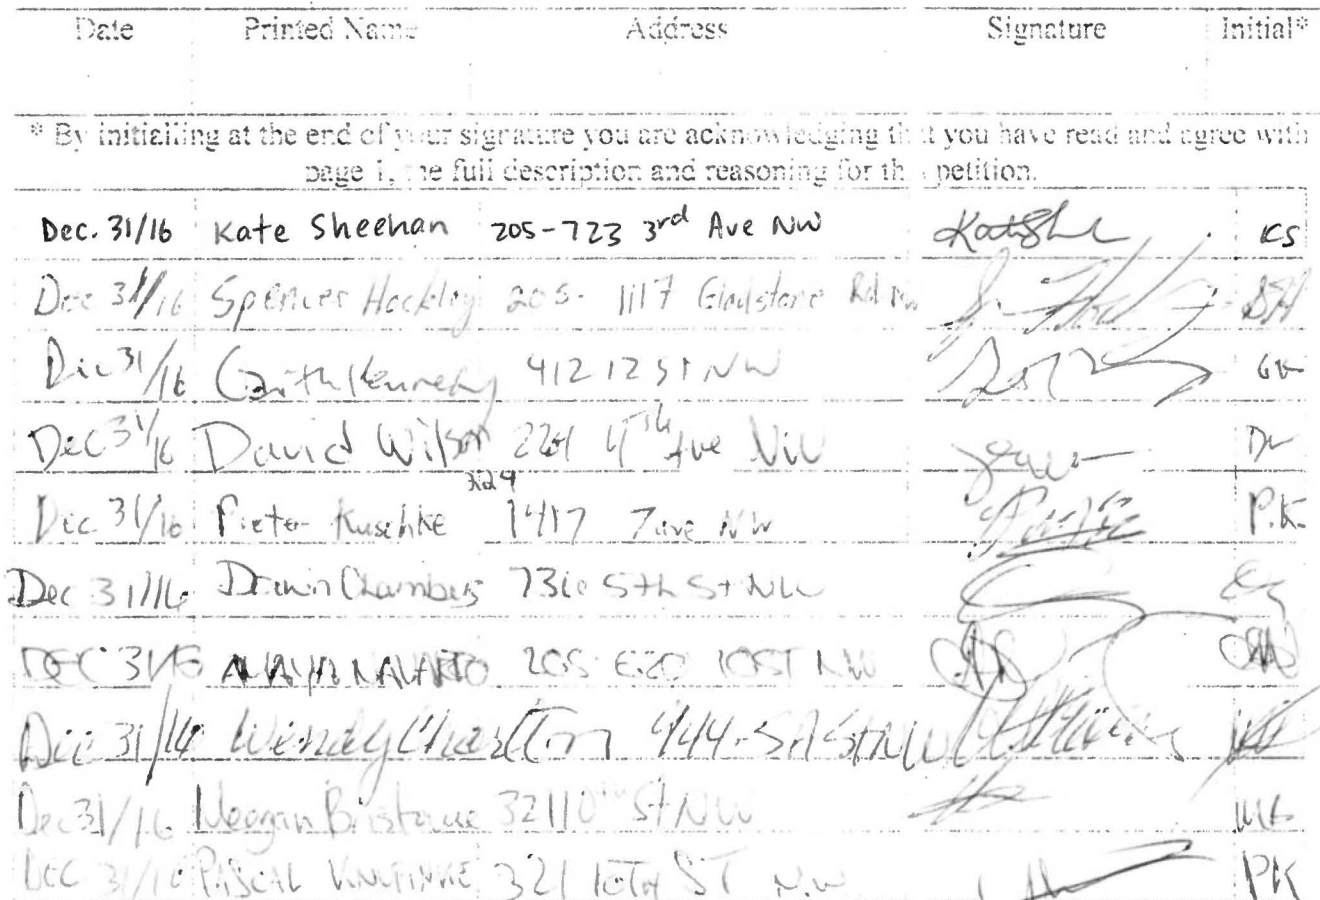 Date Printed Name Address Signature Initial*
* By initialling at the end of your signature you are acknowledging that you have read and agree with
page 1, the full description and reasoning for the petition.
Dec. 31/16 Kate Sheehan 205-723 3rd Ave NW KS
Dec 31/16 Spencer Hockley 205- 1117 Gladstone Rd NW SH
Dec 31/16 Garth Kennedy 412 12 St NW GK
Dec 31/16 David Wilson 4th Ave NW DW
Dec 31/16 Pieter Kuschke 1417 7 ave NW P.K.
Dec 31/16 Chambers 5th St NW
DEC 31/16 NAVARRO 205 620 10 ST NW
Dec 31/16 Wendy Charlton 444-5A St NW
Dec 31/16 Meegan Bristowe 321 10th St NW MB
DEC 31/16 PASCAL 321 10TH ST N.W PK